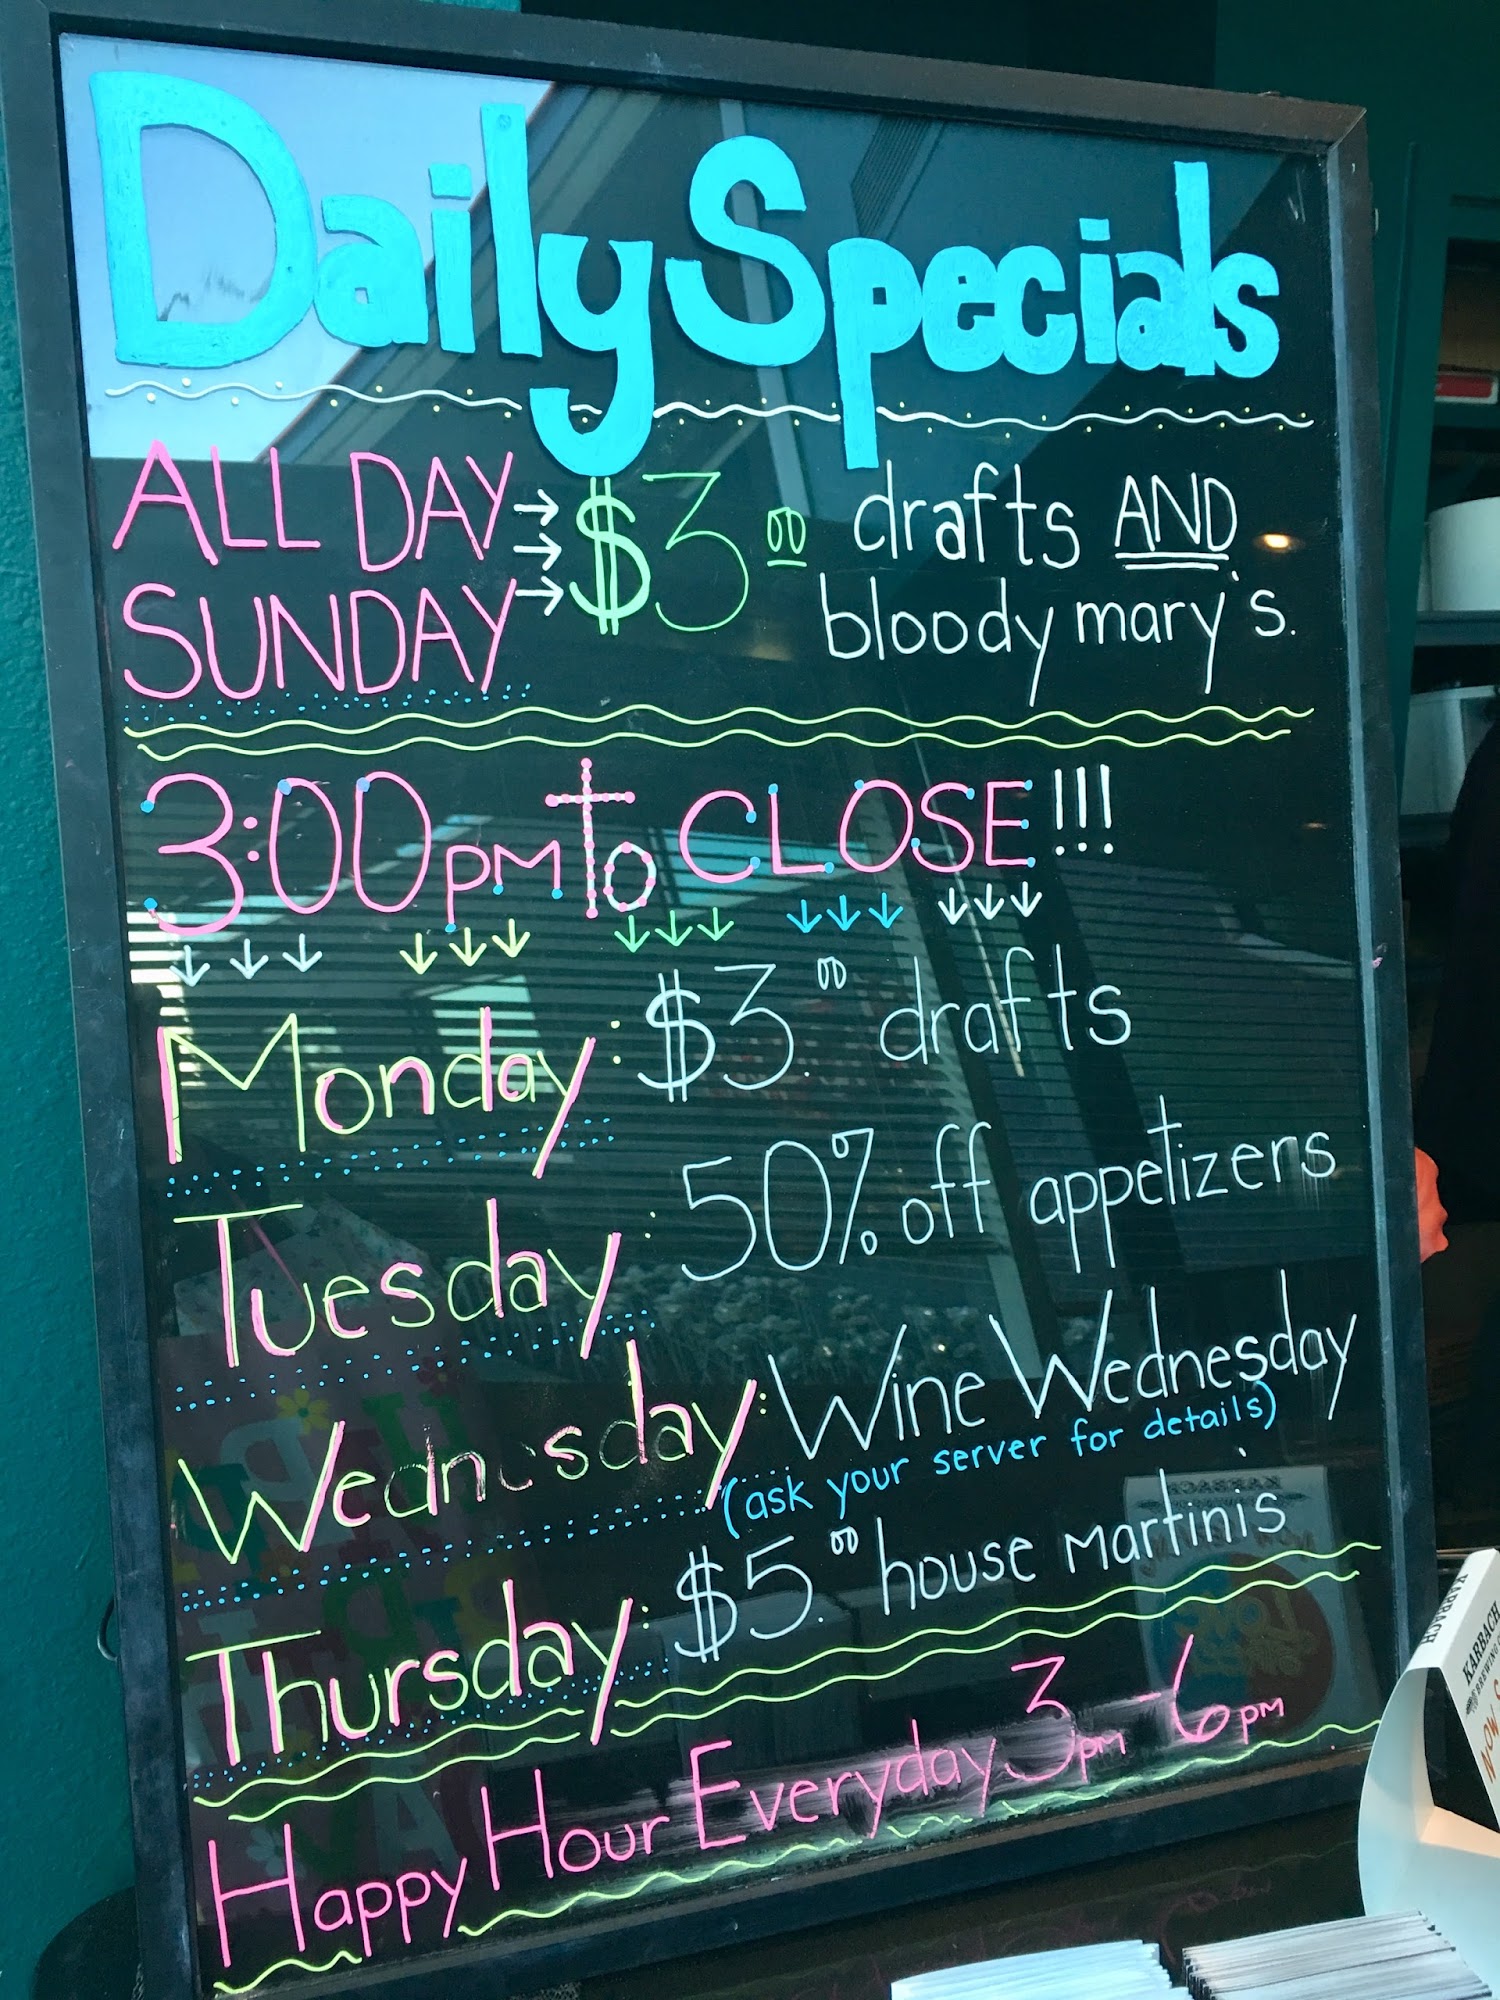 Daily Specials
ALL DAY SUNDAY $3.00 drafts AND
bloody mary's.
3:00 PM to CLOSE!!!
Monday: $3.00 drafts
Tuesday: 50% off appetizers
Wednesday: Wine Wednesday
(ask your server for details)
Thursday: $5.00 house martinis
Happy Hour Everyday 3pm-6pm
KARBACH
KARBACH
BREWING
NOW